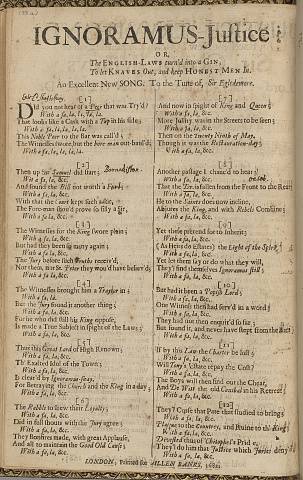 IGNORAMUS-Justice:
OR,
The ENGLISH-LAWS turn'd into a GIN,
To let KNAVES Out, and keep HONEST MEN In.
An Excellent New SONG. To the Tune of, Sir Egledemore.
[1]
Did you not hear of a Peer that was Try'd?
With a fa, la, la, la, la.
That looks like a Cask with a Tap in his side;
With a fa, la, la, la, la.
This Noble Peer to the Bar was call'd;
The Witnesses swore, but the Fore-man out-bawl'd;
With a fa, la, la, la, la.
[2]
Then up Sir Samuel did start;
With a fa, la, &c.
And found the Bill not worth a Fart;
With a fa, la, &c.
With that the Court kept such adoe,
The Fore-man should prove so silly a Sir.
With a fa, la, &c.
[3]
The Witnesses for the King swore plain;
With a fa, la, &c.
But had they been so many again;
With a fa, la, &c.
The Jury before such Truths receiv'd,
Nor them, nor St. Peter they wou'd have believ'd;
With a fa, la, &c.
[4]
The Witnesses brought him a Traytor in;
With a fa, la.
But the Jury found it another thing;
With a fa, la, &c.
For he who did still his King oppose,
Is made a True Subject in spight of the Laws;
With a fa, la, &c.
[5]
Thus this Great Lord of High Renown;
With a fa, la, &c.
Th' Exalted Idol of the Town;
With a fa, la, &c.
Is clear'd by Ignoramus-Sway,
For Betraying the Church and the King in a day;
With a fa, la, &c.
[6]
The Rabble to shew their Loyalty;
With a fa, la, &c.
Did in full shouts with the Jury agree;
With a fa, la, &c.
They Bonfires made, with great Applause,
And all to maintain the Good Old Cause;
With a fa, la, &c.
[7]
And now in spight of King and Queen;
With a fa, la, &c.
More Jollity was in the Streets to be seen;
With a fa, la, &c.
Then on the Twenty Ninth of May,
Though it was the Restauration-day;
With a fa, la, &c.
[8]
Another passage I chanced to hear;
With a fa, la, &c.
That the Tryers fallen from the Front to the Rear;
With a fa, la, &c.
He to the Saints does now incline,
Abjures the King, and with Rebels Combine;
With a fa, la, &c.
[9]
Yet these pretend for to Inherit;
With a fa, la, &c.
(As Heirs do Estates) the Light of the Spirit;
With a fa, la, &c.
Yet let them say or do what they will,
They'l find themselves Ignoramus still;
With a fa, la, &c.
[10]
But had it been a Popish Lord;
With a fa, la, &c.
One Witness then had serv'd in a word;
With a fa, la, &c.
They had not then enquir'd so far;
But found it, and never have stept from the Bar;
With a fa, la, &c.
[11]
If by this Law the Charter be lost;
With a fa, la, &c.
Will Tony's Estate repay the Cost?
With a fa, la, &c.
The Boys will then find out the Cheat,
And De Wit the old Cuckold in his Retreat;
With a fa, la, &c.
[12]
They'l Curse the Pate that studied to bring;
With a fa, la, &c.
Plague to the Country, and Ruine to the King;
With a fa, la, &c.
They'l do him that Justice which Juries deny;
With a fa, la, &c.
LONDON, Printed for ALLEN BANKS, 1682.